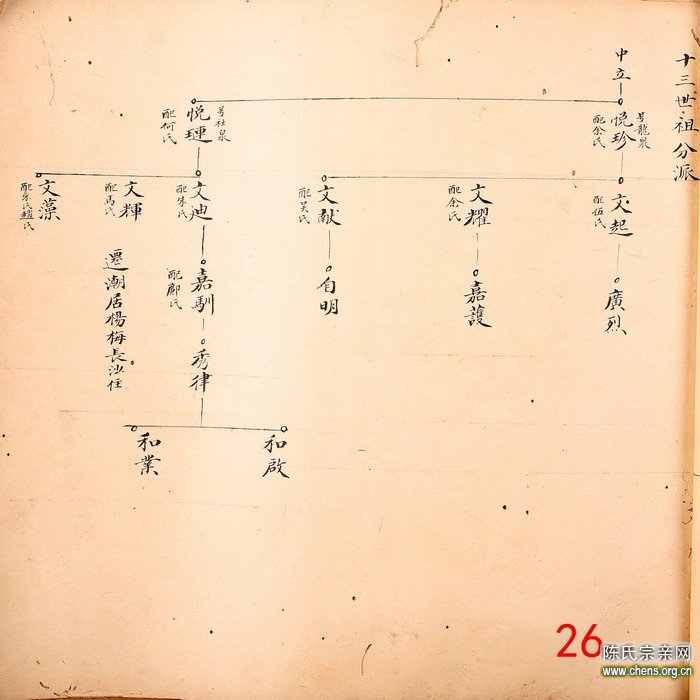 十三世祖分派
中立
悦珍
号龍泉
配余氏
悦璉
号社泉
配何氏
文起
配伍氏
文耀
配余氏
文献
配吴氏
文迪
配朱氏
文輝
配馬氏
文藻
廣烈
嘉護
自明
嘉馴
配鄺氏
遷潮居楊梅長沙住
秀律
和啟
和業
26
陈氏宗亲网
www.chens.org.cn